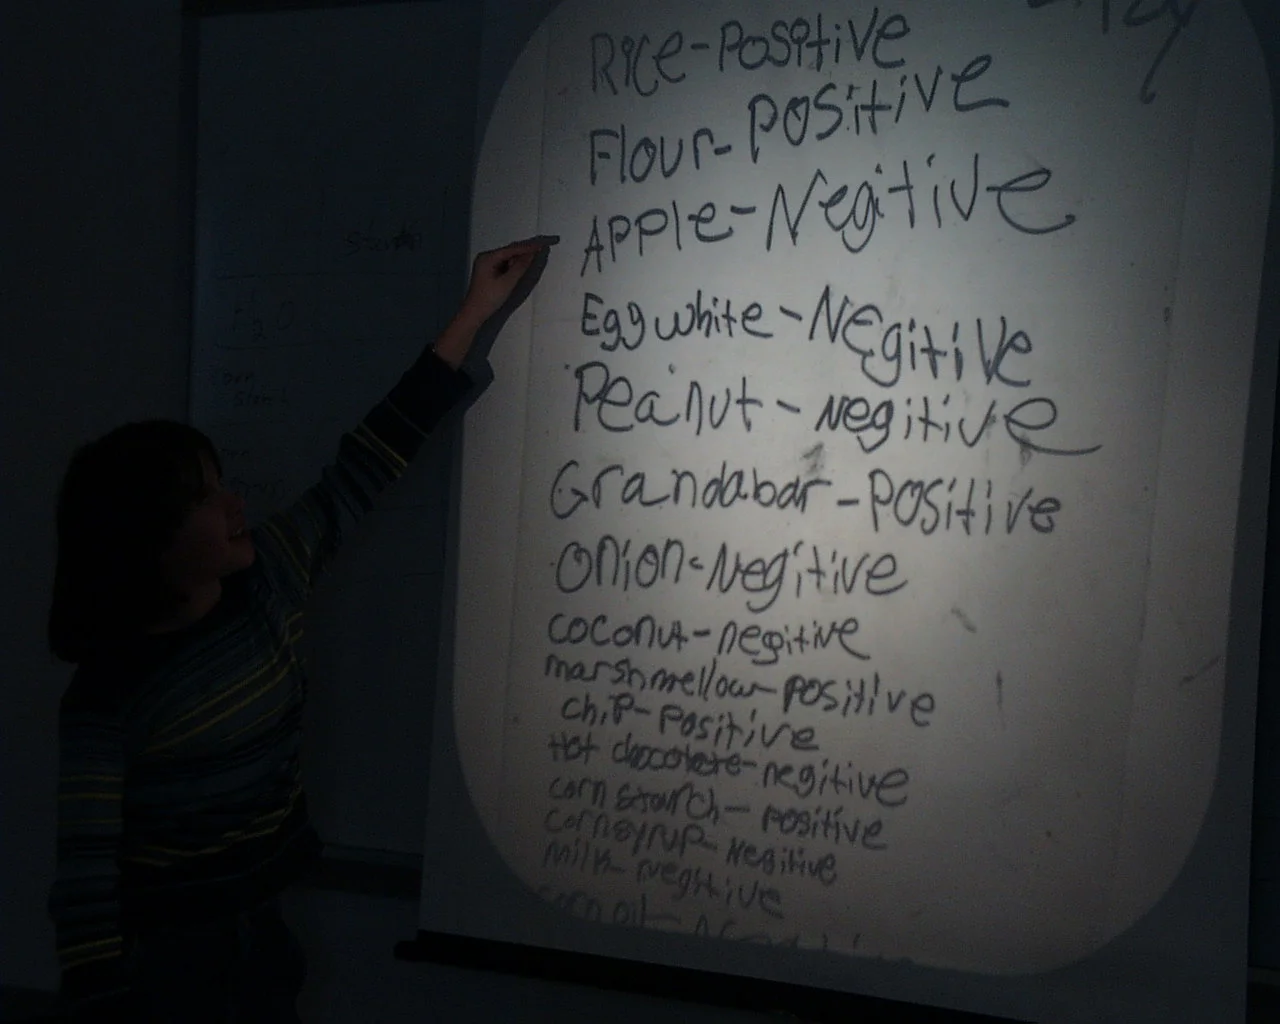 Rice-Positive
Flour-Positive
Apple-Negitive
Egg white-Negitive
Peanut-Negitive
Grandabar-Positive
Onion-Negitive
coconut-negitive
marshmellow-positive
chip-Positive
Hot chocolate-negitive
corn starch-positive
cornsyrup-Negitive
Milk-Negitive
corn oil-